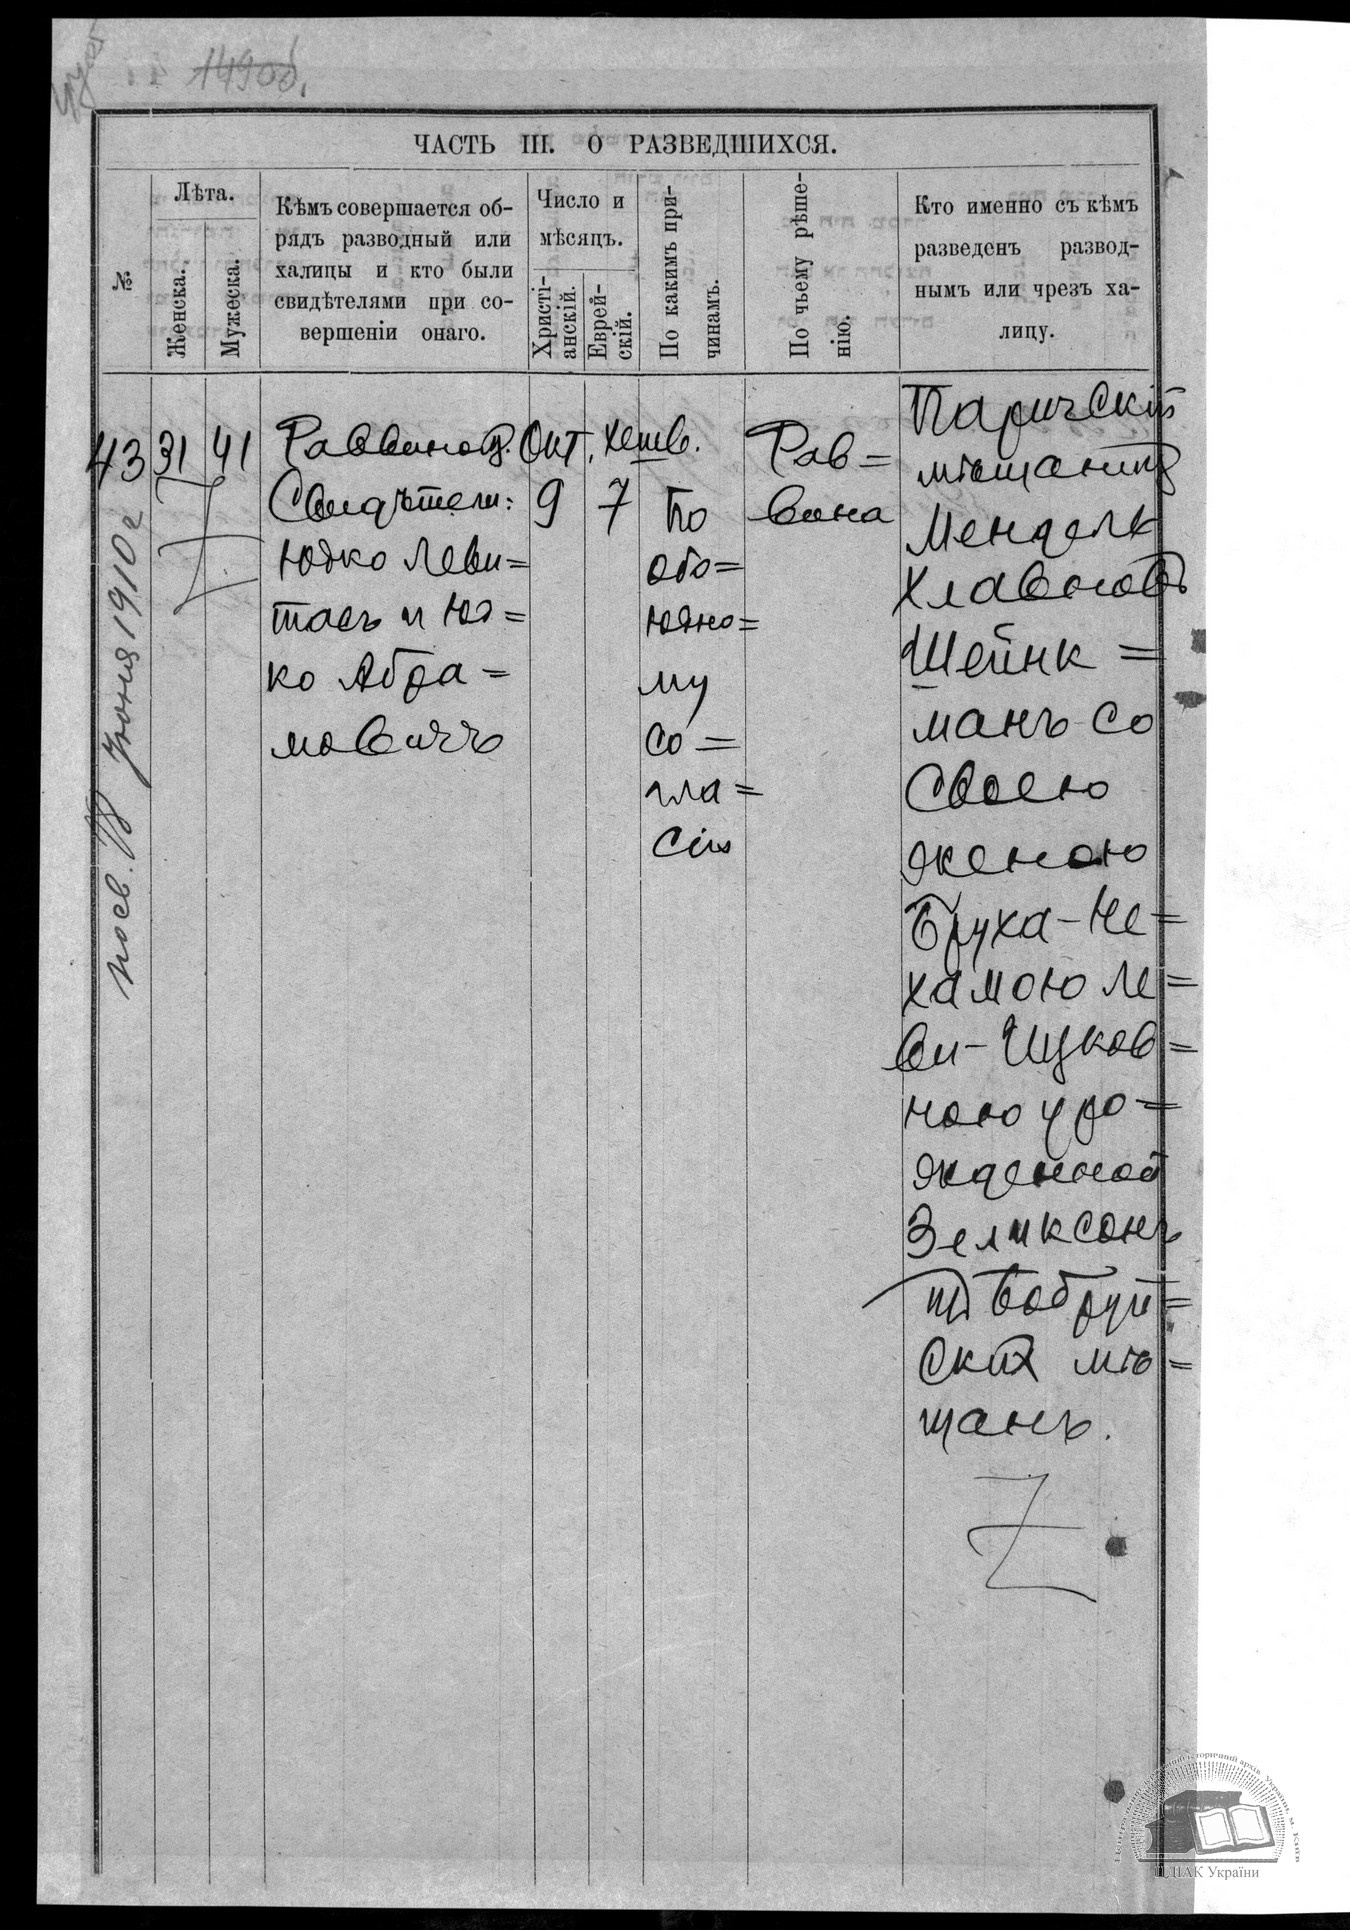 14906.
ЧАСТЬ III. О РАЗВЕДШИХСЯ.
№
Лѣта.
Женска.
Мужеска.
Кѣмъ совершается об-
рядъ разводный или
халицы и кто были
свидѣтелями при со-
вершеніи онаго.
Число и
мѣсяцъ.
Христі-
анскій.
Еврей-
скій.
По какимъ при-
чинамъ.
По чьему рѣше-
нію.
Кто именно съ кѣмъ
разведенъ развод-
нымъ или чрезъ ха-
лицу.
43
31
41
Раввиномъ.
Свидѣтели:
Юдко Леви=
тасъ и Юд=
ко Абра=
мовичъ
Окт.
9
Хешв.
7
По
обо=
юдно=
му
со=
гла=
сію
Рав=
вина
Паричскій
мѣщанинъ
Мендель
Хлавновъ
Шейнк=
манъ со
своею
женою
Бруха-Не=
хамою Ле=
ви-Ицков=
ною уро=
жденной
Зеликсонъ
изъ Бобруй=
скихъ мѣ=
щанъ.
Іюня 1910 г
ЦДІАК України